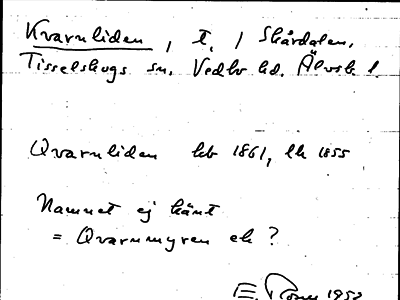 Kvarnliden, t. / Skårdalen,
Tisselskogs sn. Vedbo hd. Älvsb l.
Qvarnliden hb 1861, lh 1855
Namnet ej känt
= Qvarnmyren ek ?
E. 1952